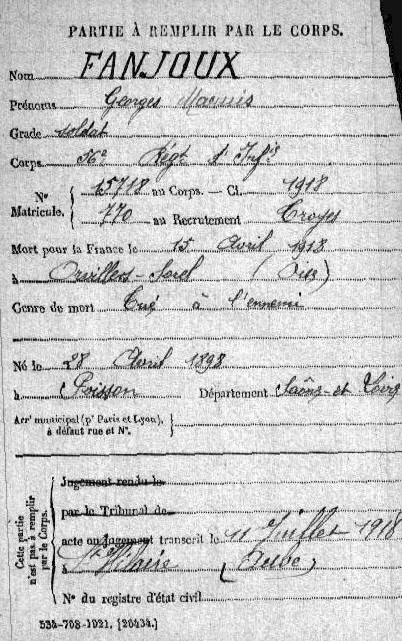 PARTIE À REMPLIR PAR LE CORPS.
Nom FANJOUX
Prénoms Georges
Grade soldat
Corps 56e Régt d'Infie
Nº Matricule. 15718 au Corps. — Cl. 1918
770 au Recrutement Troyes
Mort pour la France le 15 Avril 1918
à Orvillers-Sorel (Oise)
Genre de mort Tué à l'ennemi
Né le 28 Avril 1898
à Poisson Département Saône-et-Loire
Arrt municipal (pr Paris et Lyon), à défaut rue et Nº.
Cette partie n'est pas à remplir par le Corps.
Jugement rendu le
par le Tribunal de
acte ou jugement transcrit le 11 Juillet 1918
à St Hilaire (Aube)
Nº du registre d'état civil
534-708-1921. [26434.]